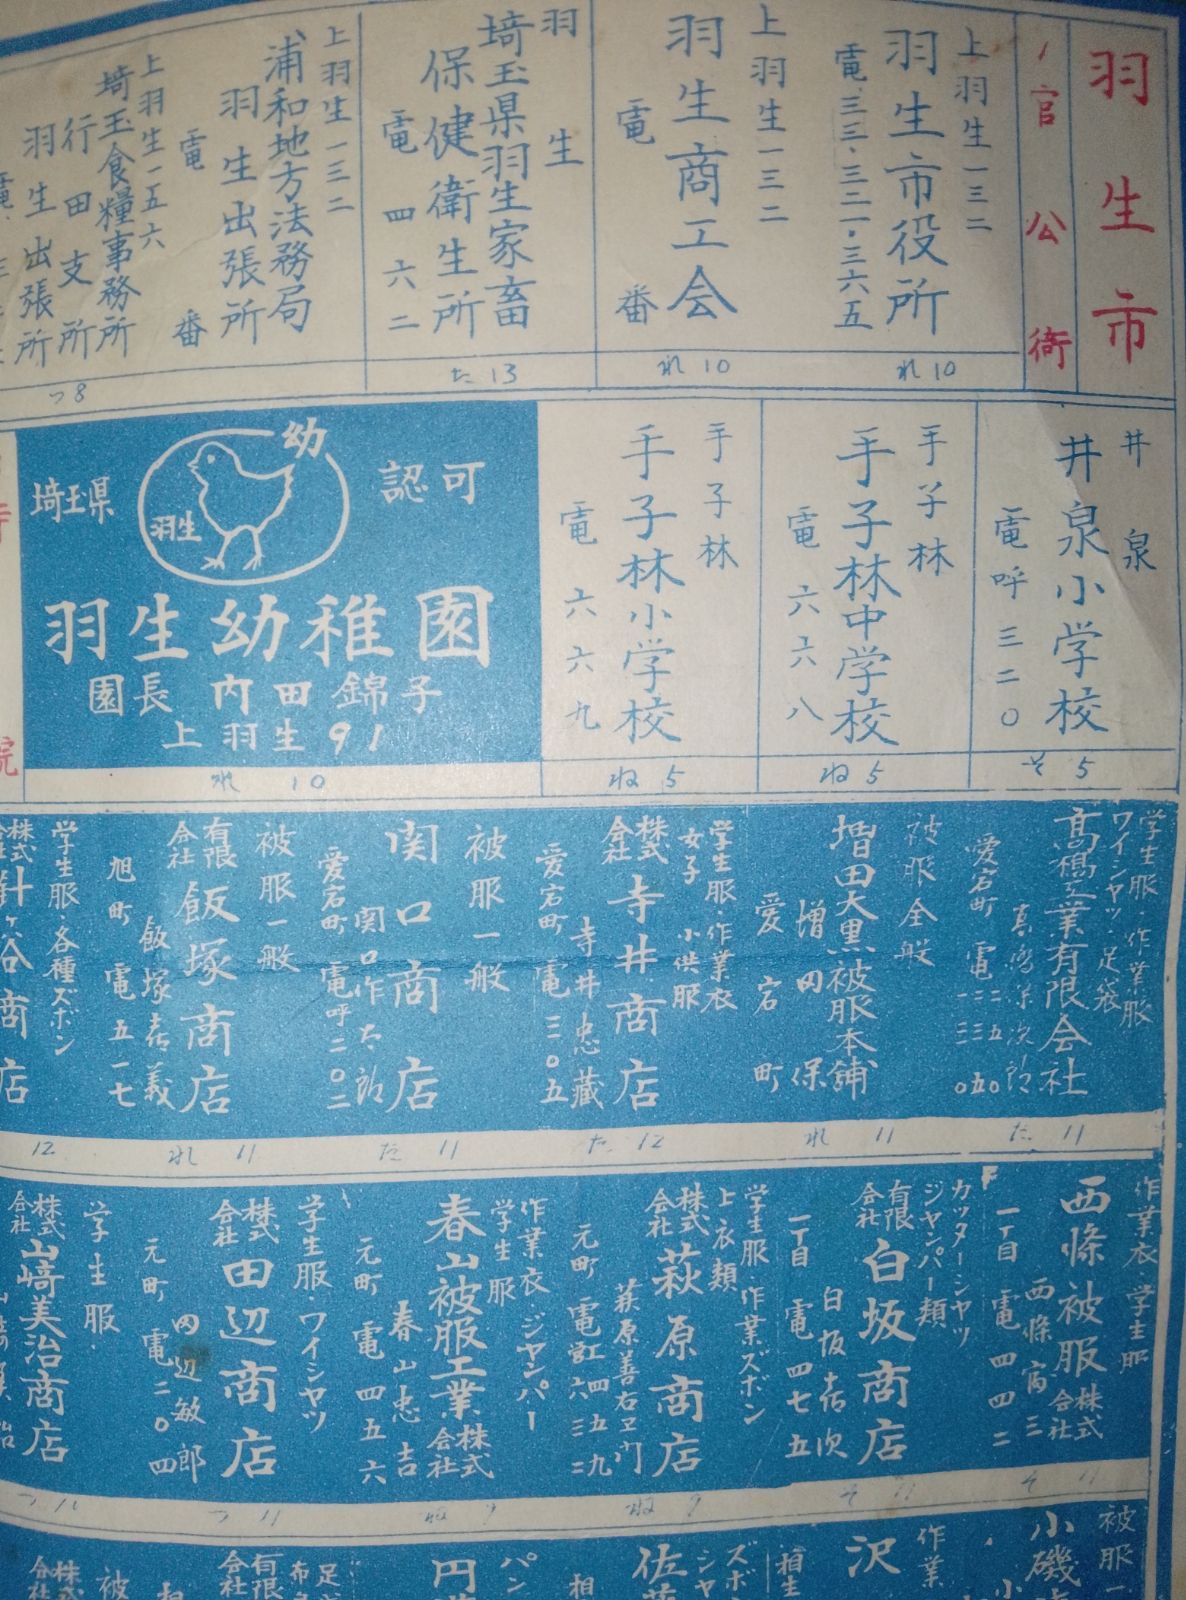 羽生市
官公衙
上羽生一三二
羽生市役所
電.三三.三二一.三六五
れ10
上羽生一三二
羽生商工会
電 番
れ10
羽生
埼玉県羽生家畜
保健衛生所
電 四六二
た13
上羽生一三二
浦和地方法務局
羽生出張所
電 番
上羽生一五六
埼玉食糧事務所
行田支所
羽生出張所
つ8
井泉
井泉小学校
電呼 三二〇
そ5
手子林
手子林中学校
電 六六八
ね5
手子林
手子林小学校
電 六六九
ね5
認可
幼
羽生
埼玉県
羽生幼稚園
園長 内田錦子
上羽生91
れ 10
学生服・作業服
ワイシャツ・足袋
高橋工業有限会社
愛宕町 電
た 11
被服全般
増田大黒被服本舗
増田 保
愛宕町
れ 11
学生服・作業衣
女子 小供服
株式会社 寺井商店
寺井忠蔵
愛宕町 電 三〇五
た 12
被服一般
関口商店
関口作太郎
愛宕町 電呼二〇二
た 11
被服一般
有限会社 飯塚商店
飯塚喜義
旭町 電 五一七
れ 11
学生服・各種ズボン
株式会社 針ヶ谷商店
12
作業衣・学生服
西條被服株式会社
一丁目 電 四四二
そ 11
カッターシヤツ
ジヤンパー類
有限会社 白坂商店
白坂喜次
一丁目 電 四七五
そ 11
学生服・作業ズボン
上衣類
株式会社 萩原商店
萩原善右ヱ門
元町
ね 9
作業衣・ジヤンパー
学生服
春山被服工業株式会社
春山忠吉
元町 電 四五六
ね 9
学生服・ワイシヤツ
株式会社 田辺商店
田辺敏郎
元町 電二〇四
つ 11
学生服.
株式会社 山崎美治商店
つ 11
被服一
小磯
作業
沢
相生
ズボ
シャ
佐
相
パン
円
足
布
有限会社
相
被
株式会社